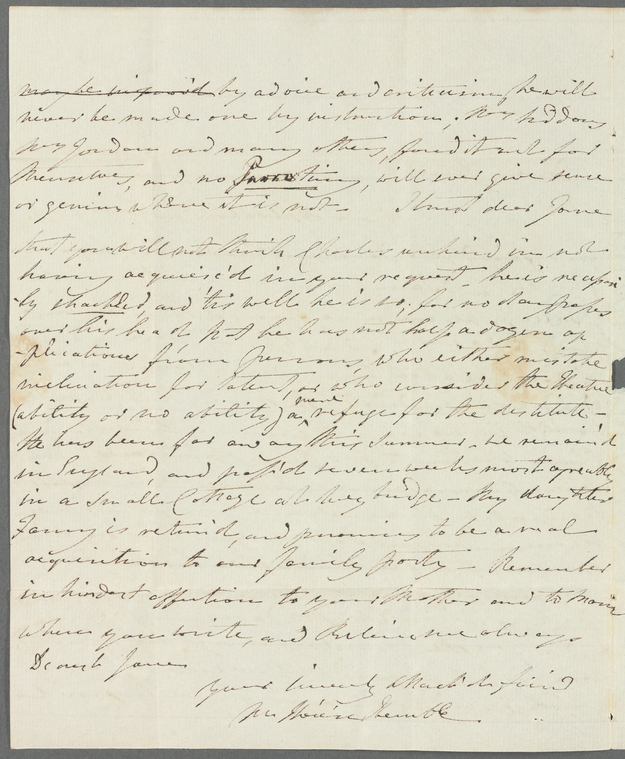 may be improv'd by advice and criticism, he will
never be made one by instruction; Mrs Siddons
Mrs Jordan and many others, found it out for
themselves, and no Parroting, will ever give sense
or genius where it is not - I trust dear Jane
that you will not think Charles unkind in not
having acquiesc'd in your request - he is necessari
ly shackled, and 'tis well he is so; for no day passes
over his head, that he has not half a dozen ap
-plications from persons, who either mistake
inclination for talent, or who consider the Theatre
(ability or no ability) a mere refuge for the destitute -
He has been far and away this Summer - we remain'd
in England, and pass'd seven weeks most agreeably
in a small Cottage at Weybridge - My daughter
Fanny is return'd, and promises to be a real
acquisition to our family party - Remember
in kindest affection to your Mother and to
when you write, and Believe me always
Dearest Jane
your sincerely attach'd friend
M Thérèse Kemble